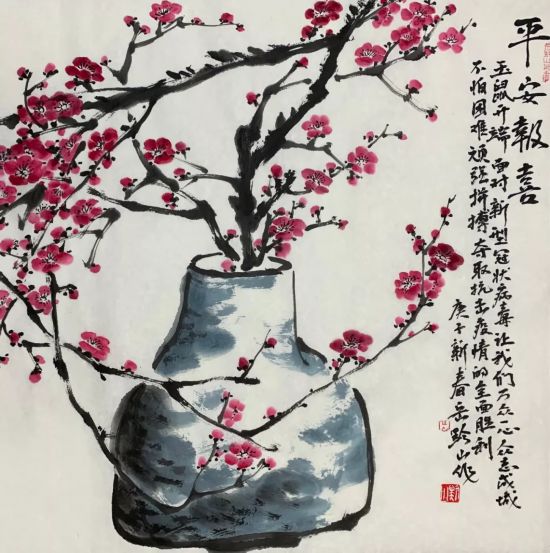 平安報喜
玉鼠开端面对新型冠状病毒让我们万众一心众志成城
不怕困难顽强拼搏夺取抗击疫情的全面胜利
庚子新春岳黔山作